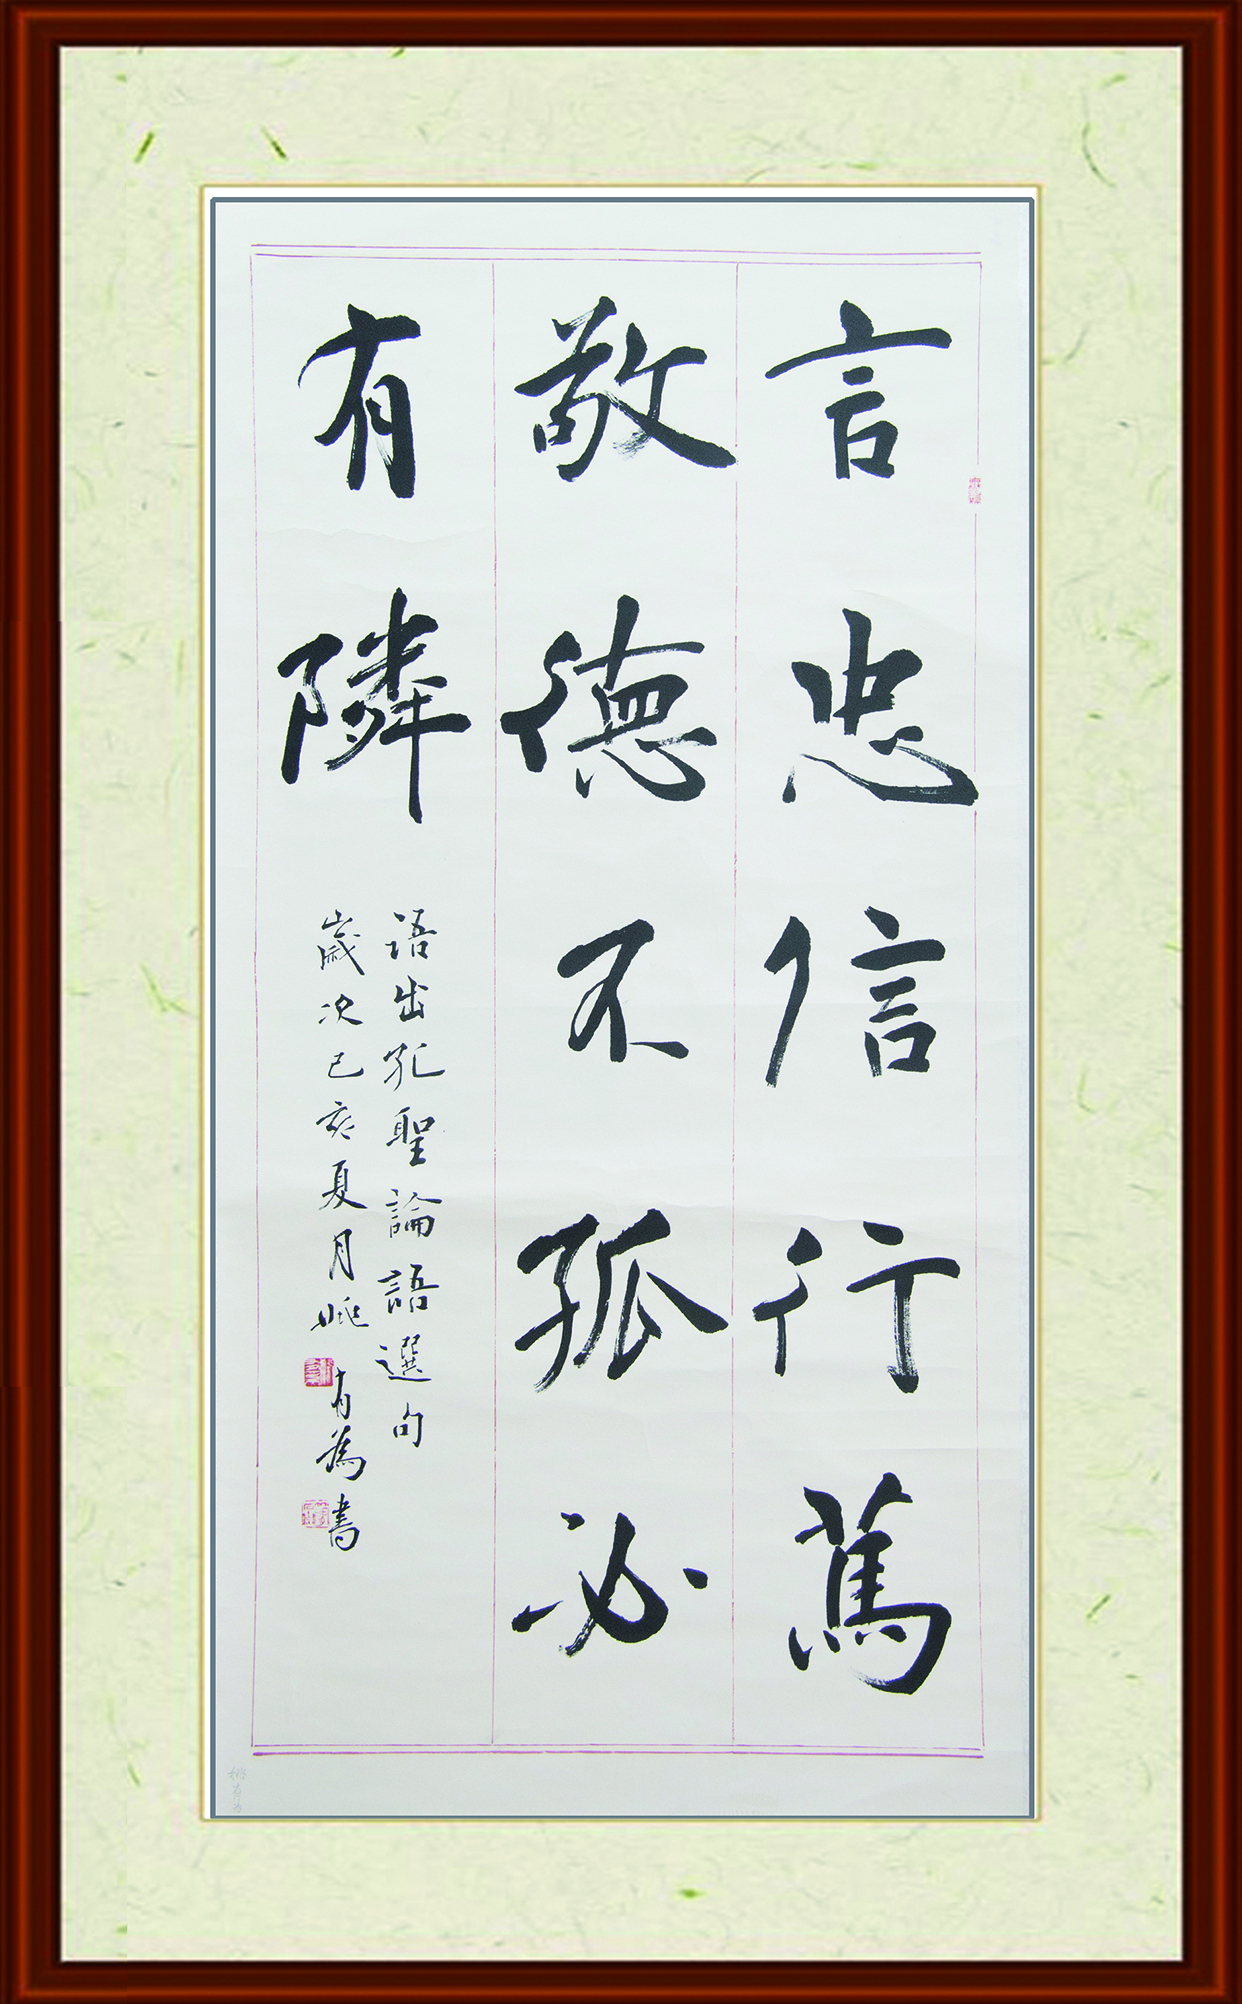 言忠信行篤
敬德不孤必
有隣
语出孔聖論語選句
歲次己亥夏月姚有為書
姚有为